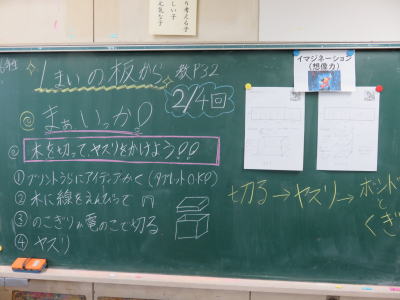 り考える子
しい子
元気な子
1まいの板から 教P32
2/4回
イマジネーション
(想像力)
◎まぁいっか!
◎木を切ってヤスリをかけよう!!
①プリントうらにアイディアかく(タブレットOKP)
②木に線をえんぴつで
③のこぎりか電のこで切る
④ヤスリ
切る→ヤスリ→ボンド
と
くぎ